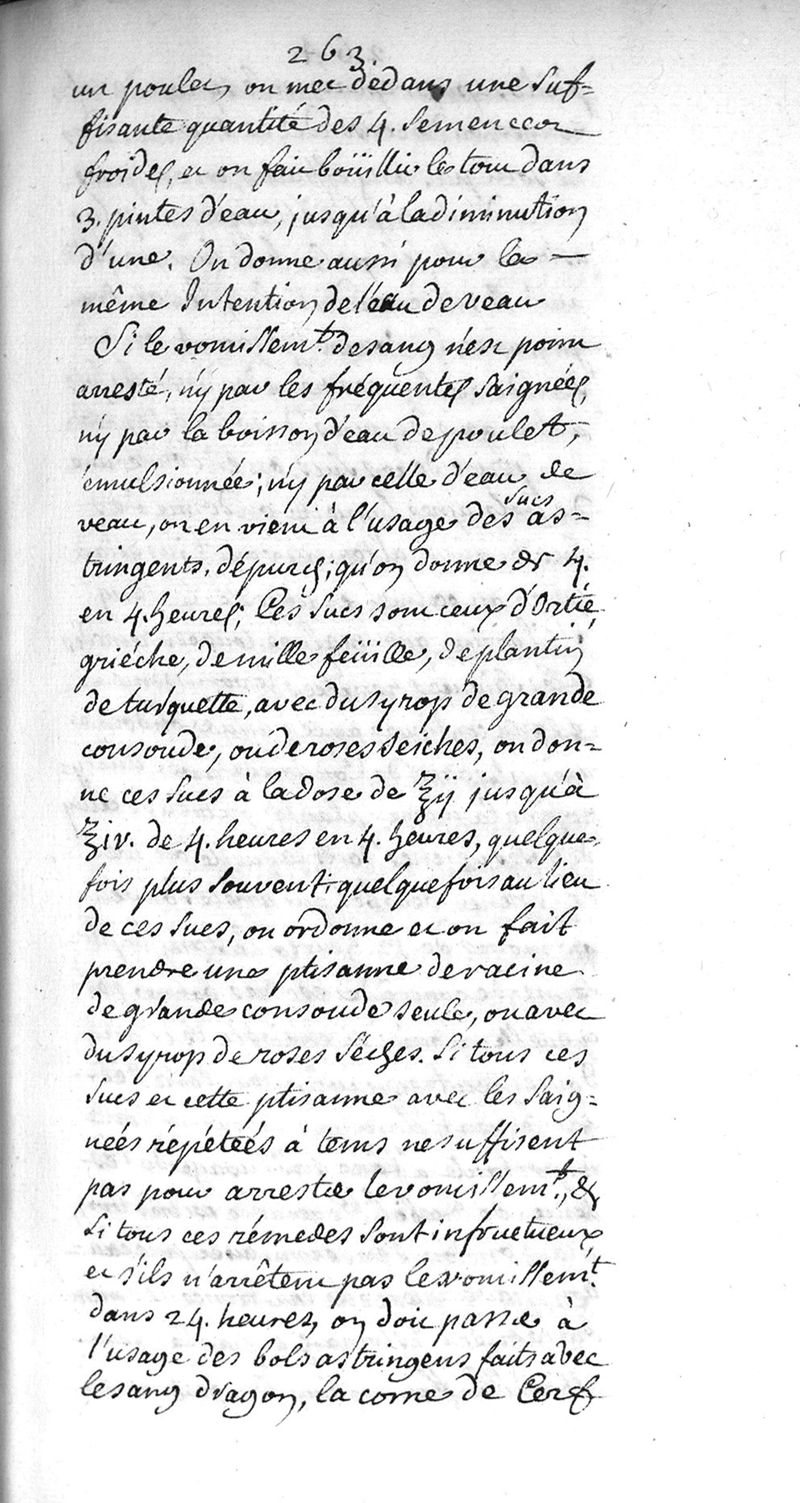 263.
un poulet, on met dedans une suf-
fisante quantité des 4. semences
froides, et on fait boüillir le tout dans
3. pintes d'eau, jusqu'à la diminution
d'une. On donne aussi pour la
même Intention de l'eau de veau
Si le vomissemt. de sang n'est point
arresté, n'y par les fréquentes saignées,
n'y par la boisson d'eau de poulet,
émulsionnée; n'y par celle d'eau de
veau, on en vient à l'usage des sucs as-
tringents, dépurés; qu'on donne de 4.
en 4. heures; Ces sucs sont ceux d'Ortie
griéche, de mille feüille, de plantin
de turquette, avec du syrop de grande
consoude, ou de roses seiches, on don-
ne ces sucs à la dose de ℥ij jusqu'à
℥iv. de 4. heures en 4. heures, quelque
fois plus souvent: quelque fois au lieu
de ces sucs, on ordonne et on fait
prendre une ptisanne de racine
de grande consoude seule, ou avec
du syrop de roses séches. Si tous ces
sucs et cette ptisanne avec les saig-
neés répéteés à tems ne suffisent
pas pour arrester le vomissemt., &
si tous ces rémedes sont infructueux
et s'ils n'arrêtent pas le vomissemt.
dans 24. heures, on doit passer à
l'usage des bols astringens faits avec
le sang dragon, la corne de Cerf